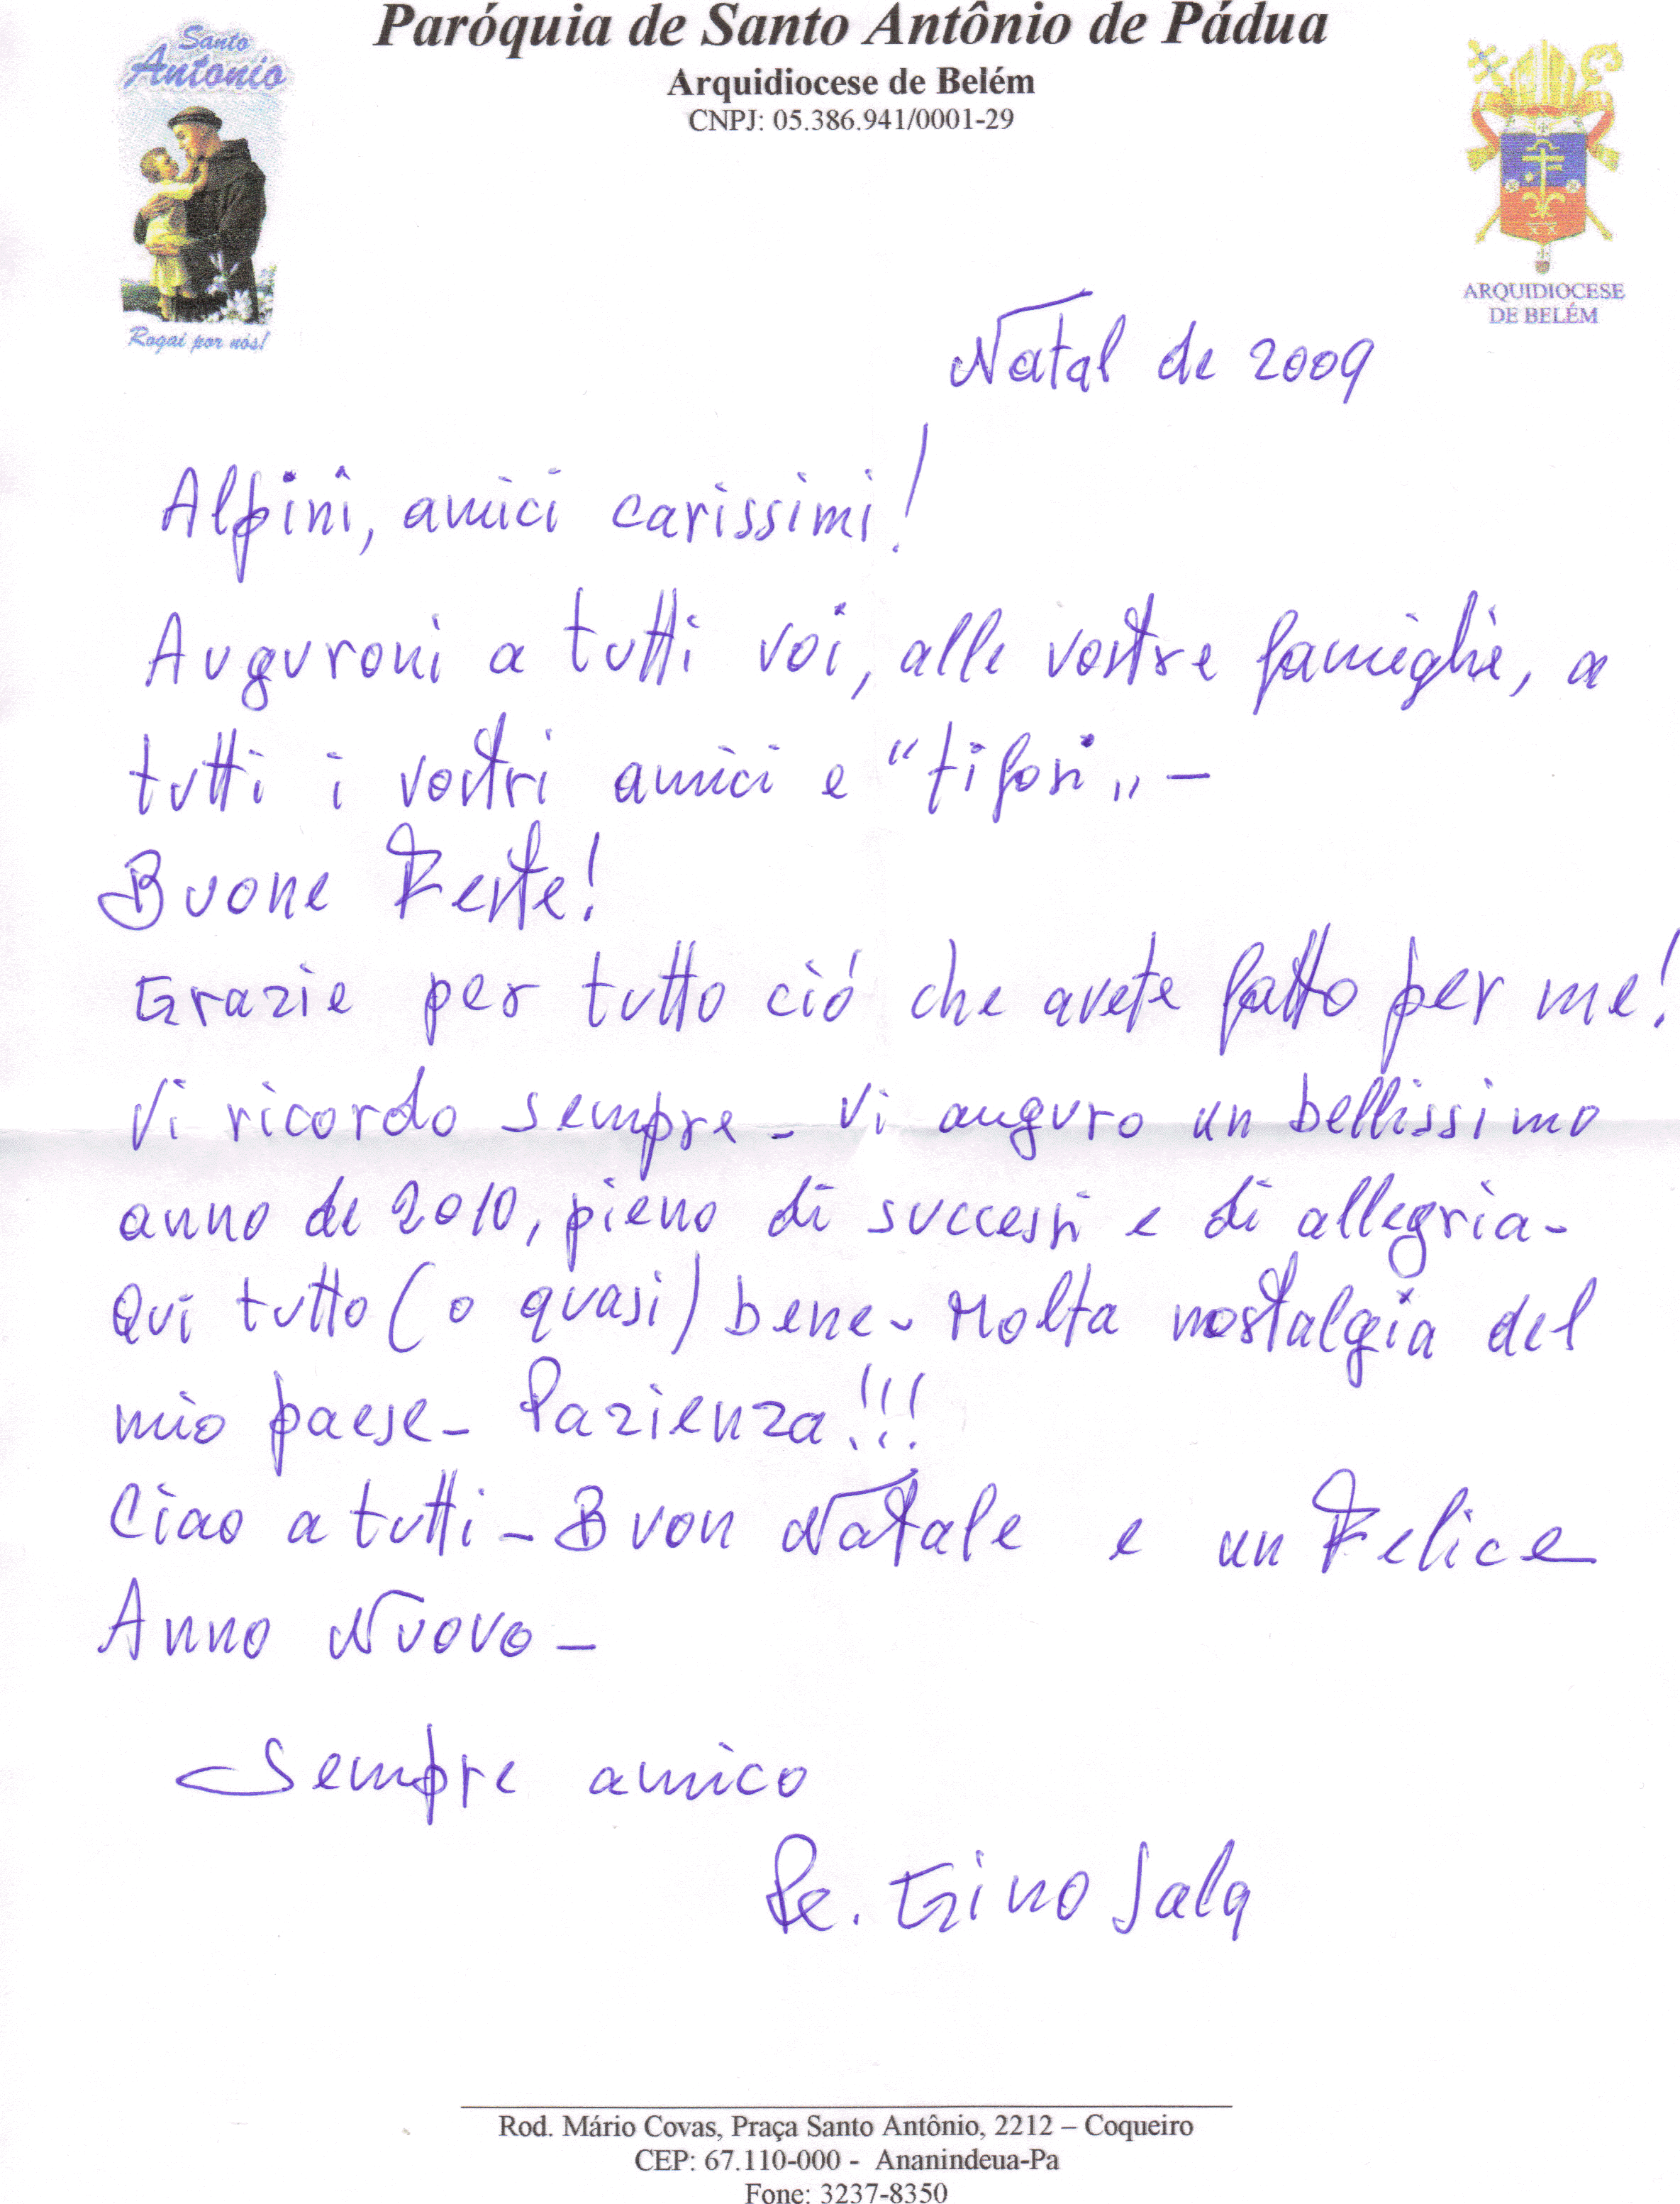 Paróquia de Santo Antônio de Pádua
Arquidiocese de Belém
CNPJ: 05.386.941/0001-29
Santo
Antonio
Rogai por nós!
ARQUIDIOCESE
DE BELÉM
Natal de 2009
Alpini, amici carissimi!
Auguroni a tutti voi, alle vostre famiglie, a
tutti i vostri amici e "tifosi" -
Buone Feste!
Grazie per tutto ció che avete fatto per me!
Vi ricordo sempre - Vi auguro un bellissimo
anno de 2010, pieno di successi e di allegria -
Qui tutto (o quasi) bene - Molta nostalgia del
mio paese - Pazienza!!!
Ciao a tutti - Buon Natale e un Felice
Anno Nuovo -
Sempre amico
Pe. Gino Sala
Rod. Mário Covas, Praça Santo Antônio, 2212 – Coqueiro
CEP: 67.110-000 - Ananindeua-Pa
Fone: 3237-8350